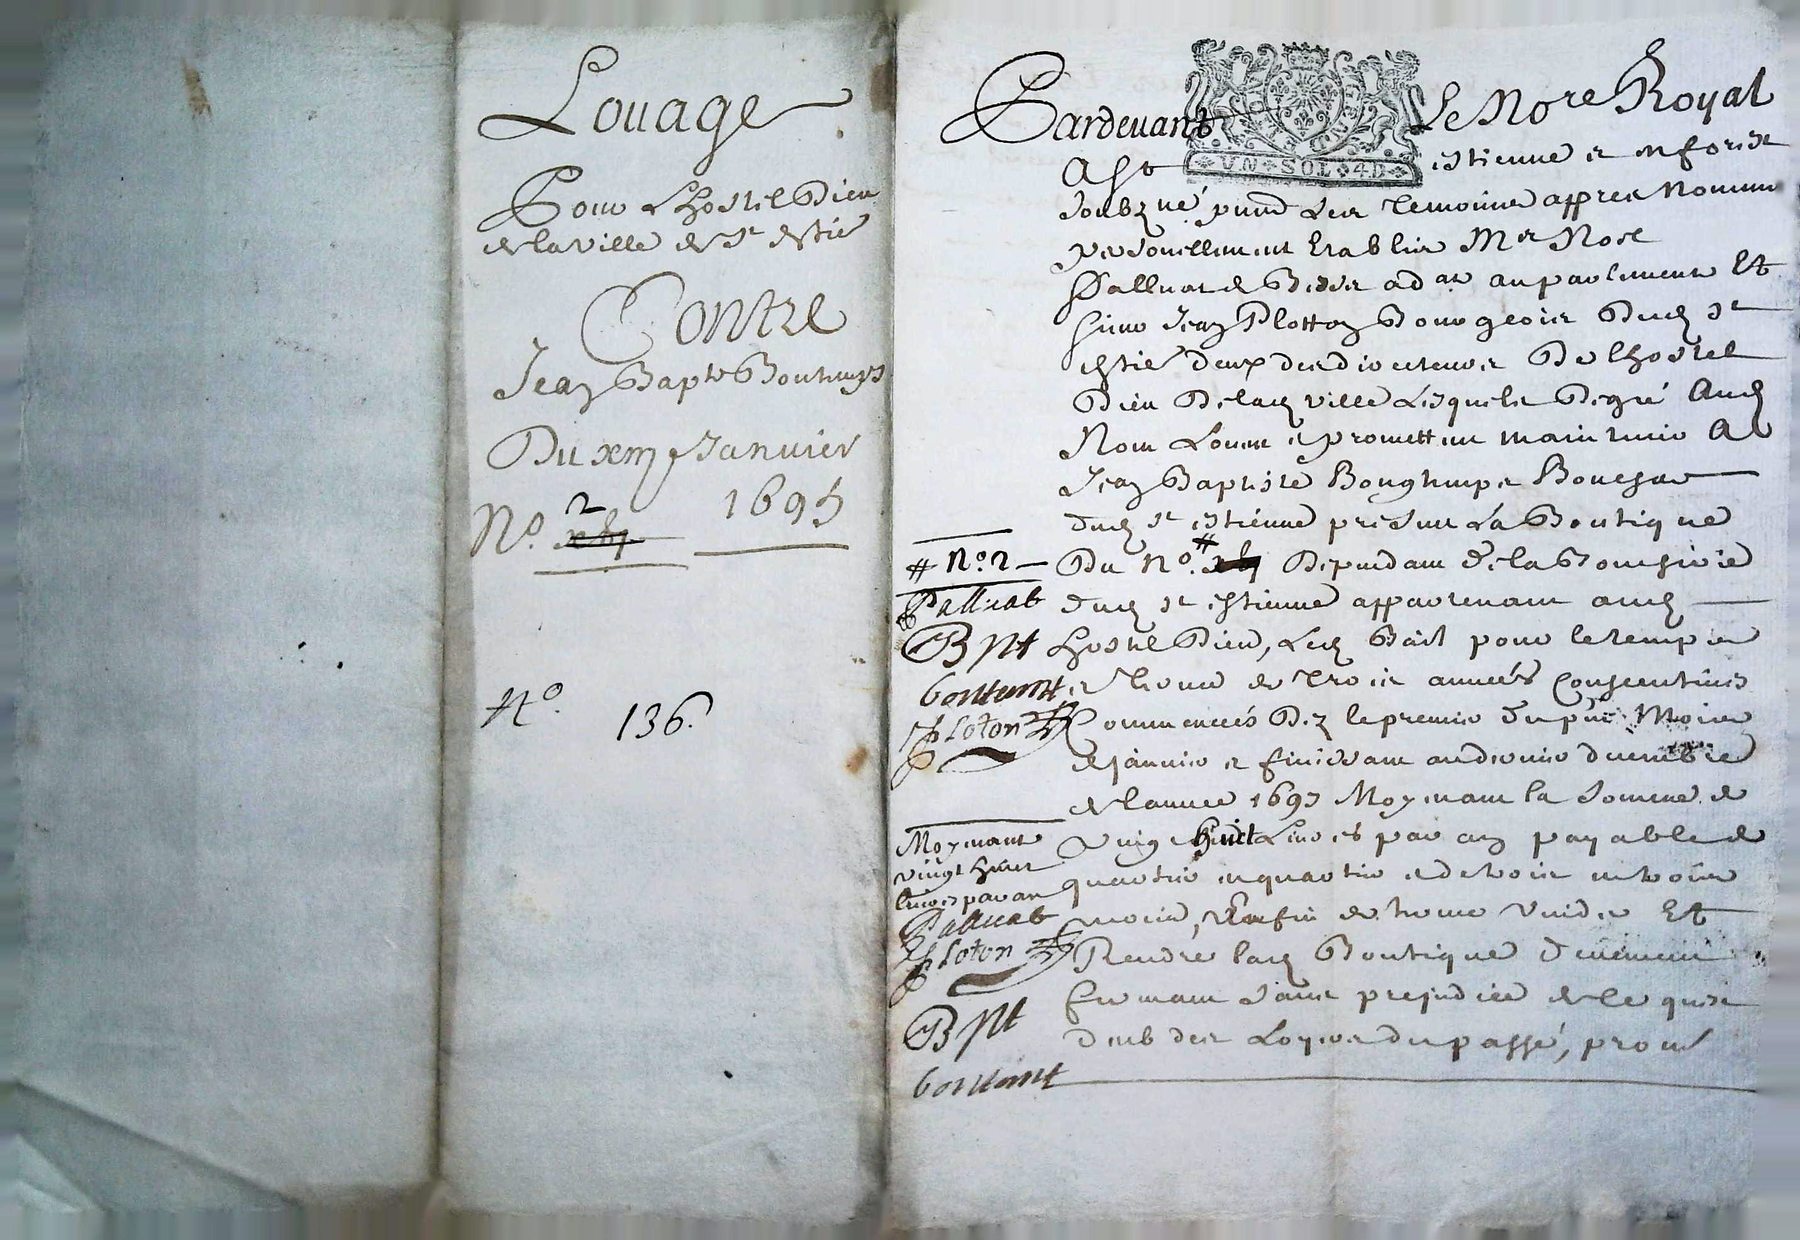 Louage
Pour Lhostel Dieu
de la ville de St Estie
Contre
Jean Bapte
Du xiij Janvier
1695
No. 2
No. 136.
Pardevant le Nore Royal
A St estienne en forest
Soubzné pnnd Les Temoins appres Nommes
personellement Establis Mr Noel
Palluat de Besset ad at au parlement Et
sieur Jean Plotton Bourgeois Dud St
estie deux des directeurs De lhostel
Dieu De lad ville Lesquels De gré Aud
Nom Louent et promettent maintenir A
Jean Baptiste
dud St estienne present La Boutique
Du No. Dependant de la Boucherie
dud St estienne appartenant aud
hostel Dieu, Led Bail pour le temps
et terme de Trois années Consecutives
Commencées Dez le premier du pnt Mois
de janvier et finissant au dernier decembre
de lannée 1697 Moyenant la Somme de
Vingt huict Livres par an payable de
quartier en quartier et de trois en trois
mois, et en fin de terme vuider Et
Rendre lad Boutique
sans prejudice de ce quest
deub des Loyers du passé, promt
# No. 2
Palluat
BNt
Ploton
Moyenant
vingt huict
livres par an
Palluat
Ploton
BNt
UN SOL 4D